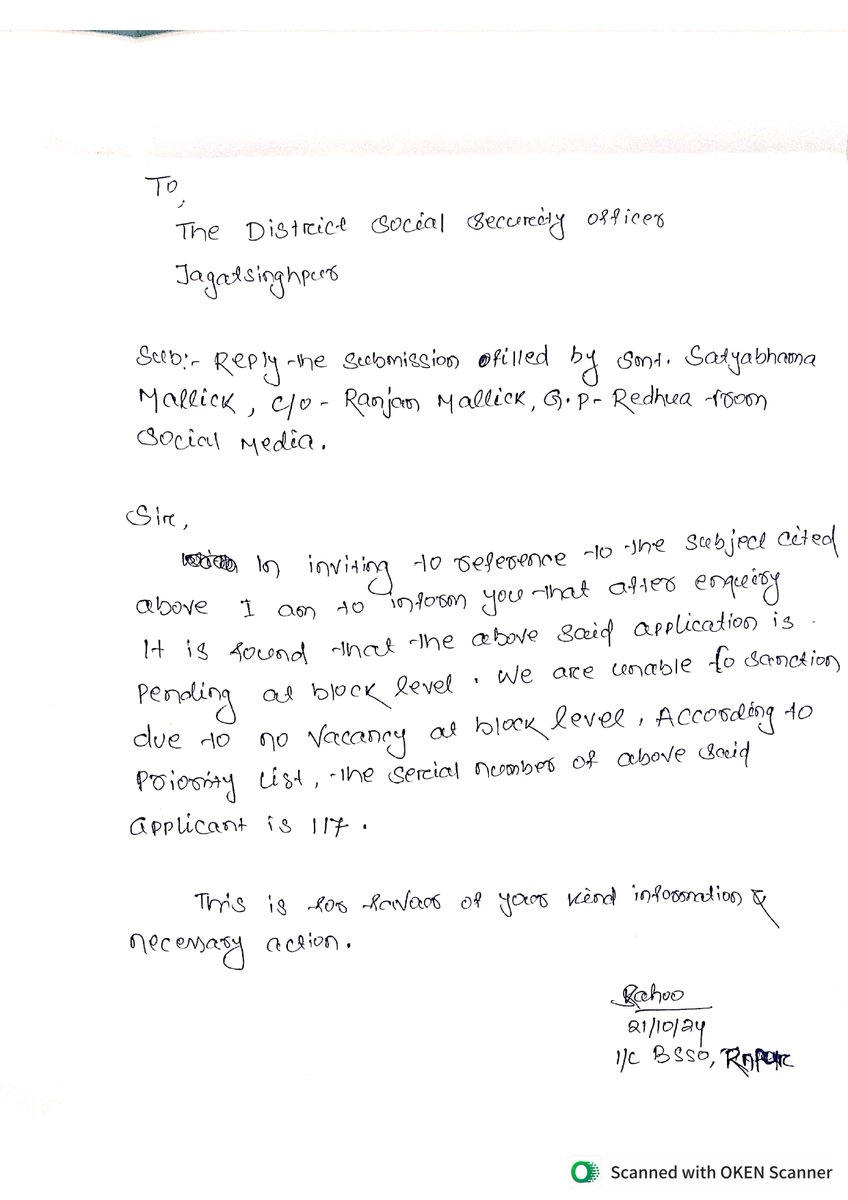 To,
The District Social Security officer
Jagatsinghpur
Sub:- Reply the submission filled by Smt. Satyabhama
Mallick, C/o - Ranjan Mallick, G.P- Redhua from
Social Media.
Sir,
In inviting to reference to the subject cited
above I am to inform you that after enquiry
It is found that the above said application is
pending at block level. We are unable to sanction
due to no vacancy at block level, According to
Priority List, the serial number of above said
applicant is 117.
This is for favour of your kind information &
necessary action.
21/10/24
I/C BSSO,
Scanned with OKEN Scanner